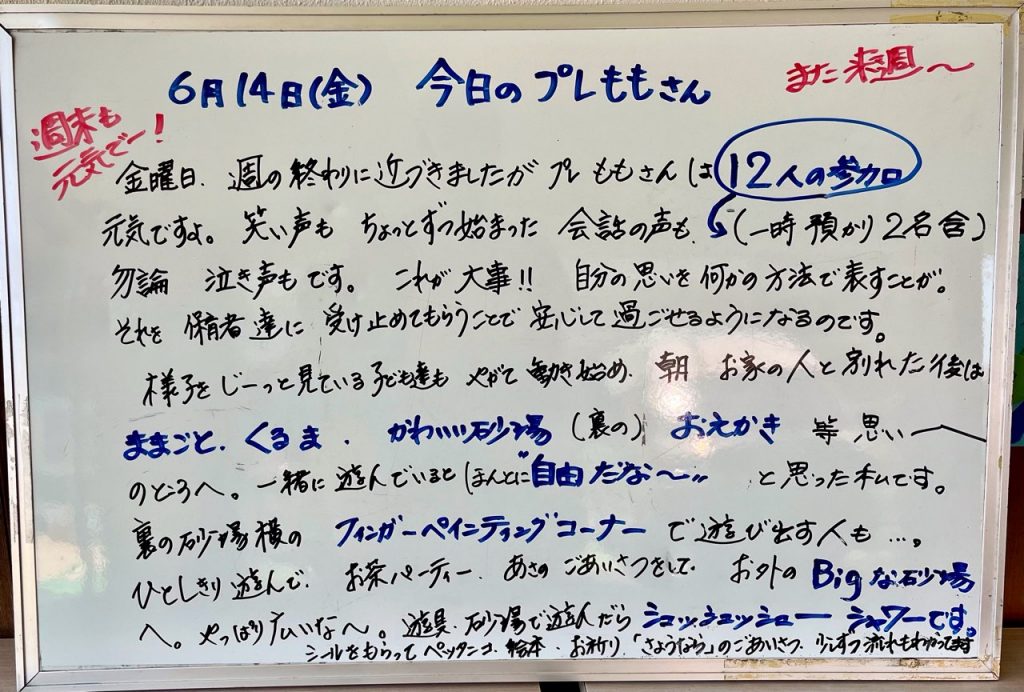 6月14日(金) 今日のプレももさん
また来週〜
週末も
元気でー!
金曜日、週の終わりに近づきましたが プレももさんは 12人の参加
元気ですよ。笑い声も ちょっとずつ始まった 会話の声も、(一時預かり2名含)
勿論 泣き声もです。これが大事!! 自分の思いを何かの方法で表すことが。
それを保育者達に 受け止めてもらうことで 安心して過ごせるようになるのです。
様子をじーっと見ている子ども達も やがて動き始め、朝 お家の人と別れた後は
ままごと、くるま、かわいい砂場(裏の) おえかき 等 思い〜
のところへ。一緒に遊んでいると ほんとに"自由だな〜" と思った私です。
裏の砂場横の フィンガーペインティングコーナー で遊び出す人も…。
ひとしきり遊んで、お茶パーティー、あさのごあいさつをして、お外の Bigな砂場
へ。やっぱり広いな〜。遊具、砂場で遊んだら シュッシュッシュー シャワーです。
シールをもらって ペッタンコ、絵本、お祈り、「さようなら」のごあいさつ、少しずつ流れもわかってます